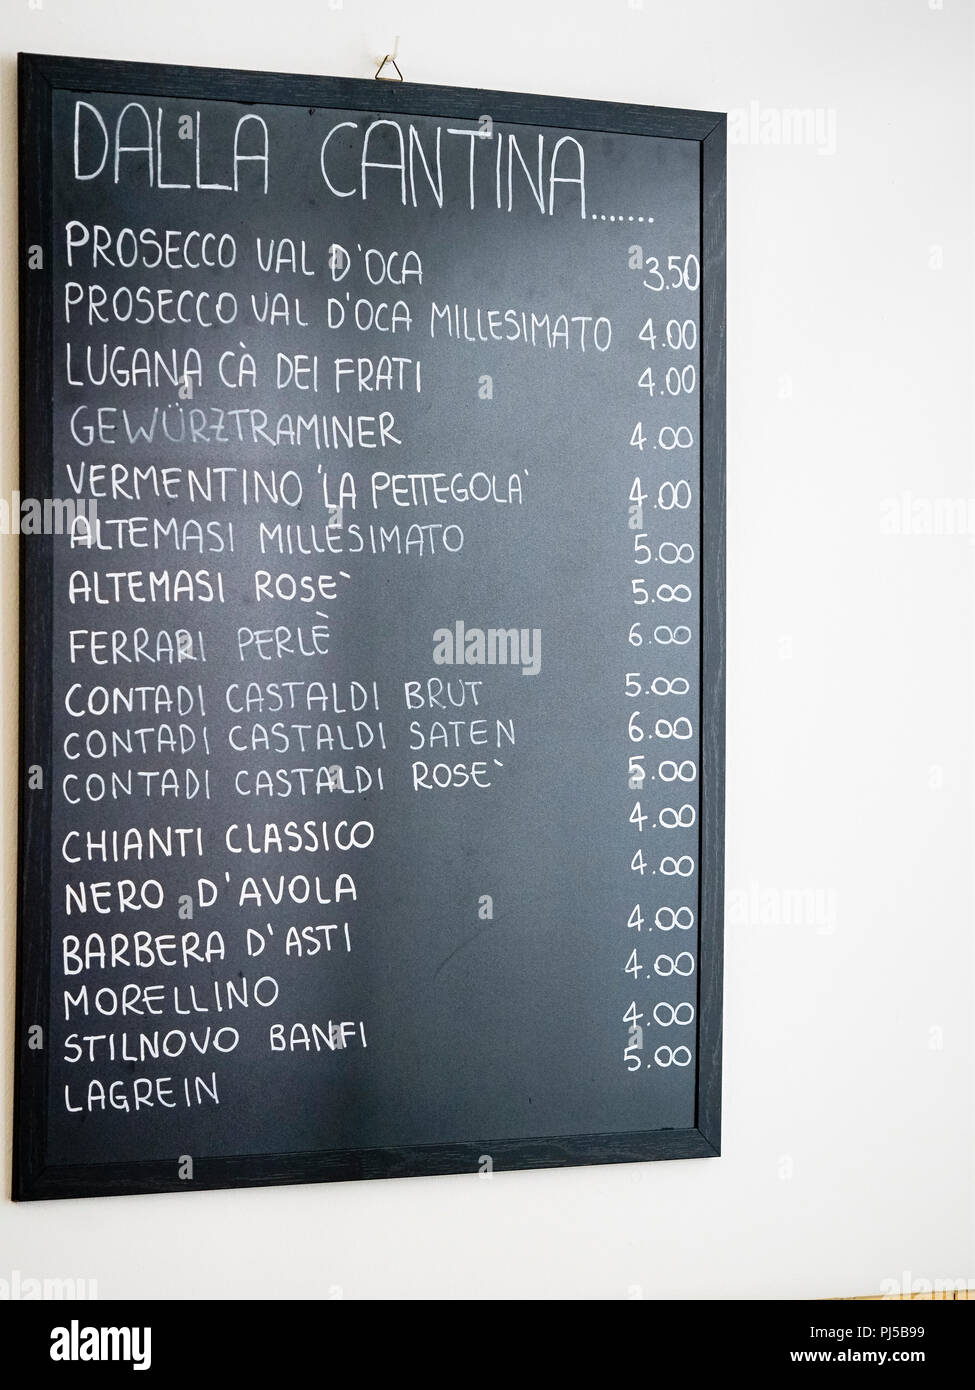 DALLA CANTINA.......
PROSECCO VAL D'OCA 3.50
PROSECCO VAL D'OCA MILLESIMATO 4.00
LUGANA CÀ DEI FRATI 4.00
GEWÜRZTRAMINER 4.00
VERMENTINO 'LA PETTEGOLA' 4.00
ALTEMASI MILLESIMATO 5.00
ALTEMASI ROSE` 5.00
FERRARI PERLÈ 6.00
CONTADI CASTALDI BRUT 5.00
CONTADI CASTALDI SATEN 6.00
CONTADI CASTALDI ROSE` 5.00
CHIANTI CLASSICO 4.00
NERO D'AVOLA 4.00
BARBERA D'ASTI 4.00
MORELLINO 4.00
STILNOVO BANFI 4.00
LAGREIN 5.00
alamy
Image ID: PJ5B99
www.alamy.com